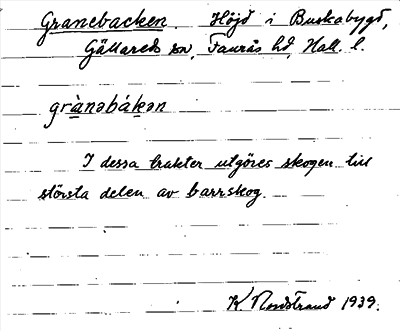 Granebacken. Höjd i Buskabygd,
Gällareds sn, Faurås hd, Hall. l.
grànəbákən
I dessa trakter utgöres skogen till
största delen av barrskog.
K. Nordstrand 1939.